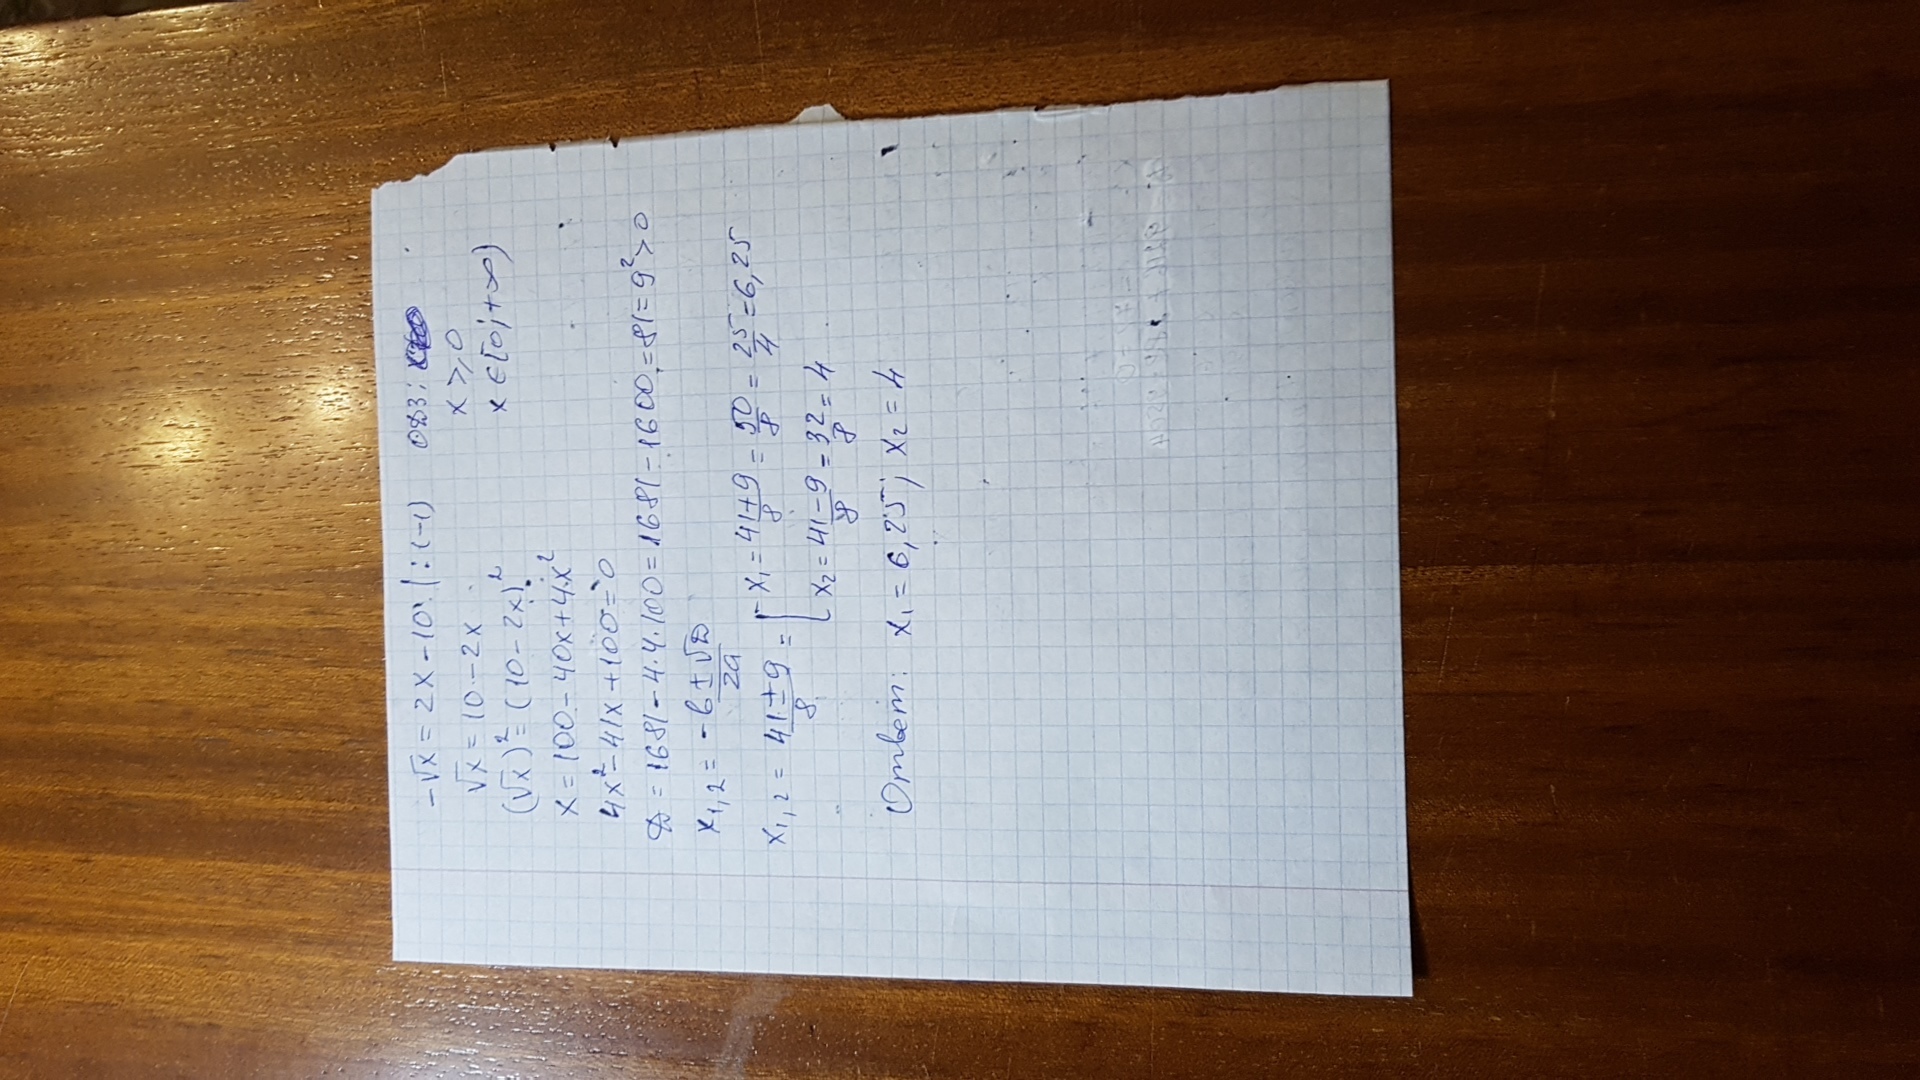 -√x = 2x - 10 | : (-1) ОДЗ:
√x = 10 - 2x x ⩾ 0
(√x)² = (10 - 2x)² x ∈ [0; +∞)
x = 100 - 40x + 4x²
4x² - 41x + 100 = 0
D = 1681 - 4·4·100 = 1681 - 1600 = 81 = 9² > 0
x₁,₂ = -b ± √D / 2a
x₁,₂ = 41 ± 9 / 8 = [ x₁ = 41 + 9 / 8 = 50 / 8 = 25 / 4 = 6,25
x₂ = 41 - 9 / 8 = 32 / 8 = 4
Ответ: x₁ = 6,25; x₂ = 4